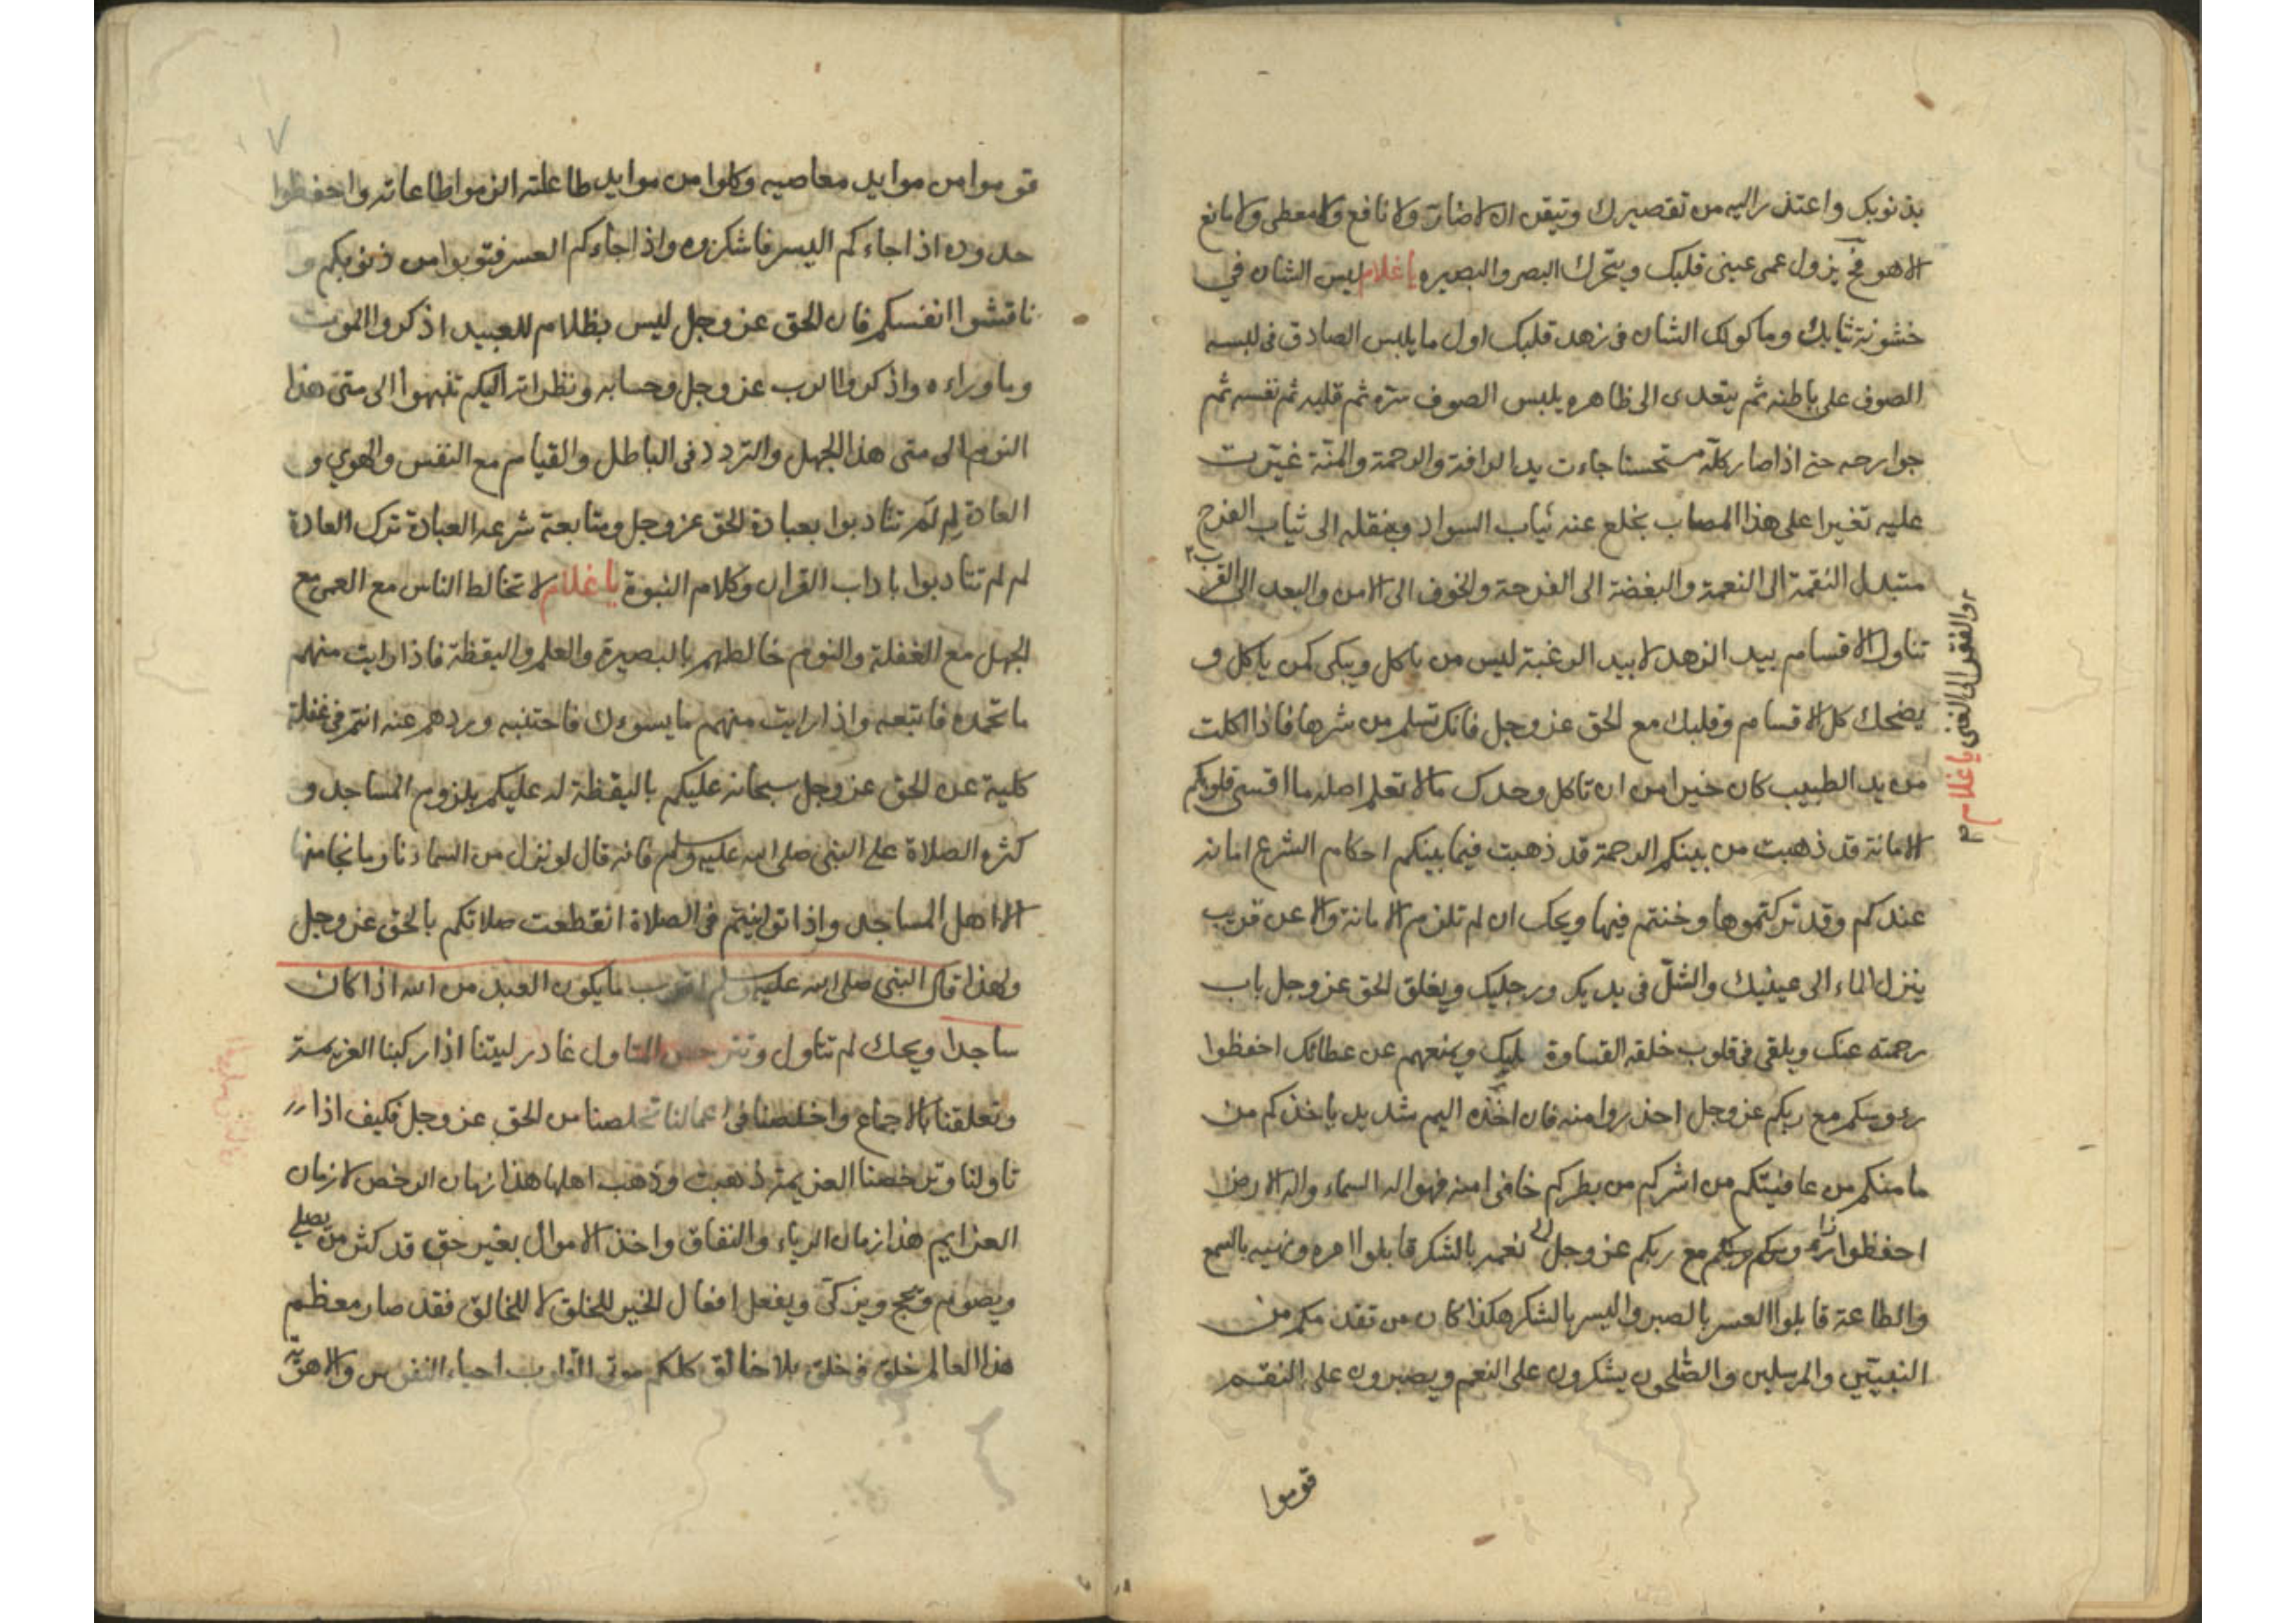 بذنوبك واعتذر اليه من تقصيرك وتيقن ان لا ضار ولا نافع ولا معطى ولا مانع
الا هو فح يزول عمى عينى قلبك ويتحرك البصر والبصيره يا غلام ليس الشان في
خشونة ثيابك وماكولك الشان فى زهد قلبك اول ما يلبس الصادق فى لبسه
الصوف على باطنه ثم يتعدى الى ظاهره يلبس الصوف سره ثم قلبه ثم نفسه ثم
جوارحه حتى اذا صار كله مستخشنا جاءت يد الرافة والرحمة والمنة غيرت
عليه تغيرا على هذا المصاب يخلع عنه ثياب السواد وينقله الى ثياب الفرح
متبدل النقمة الى النعمة والبغضة الى الفرحة والخوف الى الامن والبعد الى القرب
والفقر الى الغنى يا غلام
تناول الاقسام بيد الزهد لا بيد الرغبة ليس من ياكل ويبكى كمن ياكل و
يضحك كل الاقسام وقلبك مع الحق عز وجل فانك تسلم من شرها فاذا اكلت
من يد الطبيب كان خيرا من ان تاكل وحدك مالا تعلم اصله ما اقسى قلوبكم
الامانة قد ذهبت من بينكم الرحمة قد ذهبت فيما بينكم احكام الشرع امانه
عندكم وقد تركتموها وخنتم فيها ويحك ان لم تلزم الامانة والا عن قريب
ينزل الماء الى عينيك والشلّ فى يديك ورجليك ويغلق الحق عز وجل باب
رحمته عنك ويلقى فى قلوب خلقه القساوة عليك ويمنعهم عن عطائك احفظوا
رءوسكم مع ربكم عز وجل احذروا منه فان اخذه اليم شديد ياخذكم من
مامنكم من عافيتكم من اشركم من بطركم خافوا منه فهو اله السماء واله الارض
احفظوا مع ربكم عز وجل نعمه بالشكر قابلوا امره ونهيه بالسمع
والطاعة قابلوا العسر بالصبر واليسر بالشكر هكذا كان من تقدمكم من
النبيّين والمرسلين والصّلحون يشكرون على النعم ويصبرون على النقم
قوموا
٧
قوموا من موايد معاصيه وكلوا من موايد طاعته الزموا طاعاته واحفظوا
حدوده اذا جاءكم اليسر فاشكروه واذا جاءكم العسر فتوبوا من ذنوبكم و
ناقشوا انفسكم فان الحق عز وجل ليس بظلام للعبيد اذكروا الموت
وما وراءه واذكروا الرب عز وجل وحسابه ونظراته اليكم تنبهوا الى متى هذا
النوم الى متى هذا الجهل والتردد فى الباطل والقيام مع النفس والهوي و
العادة لم لم تتادبوا بعبادة الحق عز وجل ومتابعة شرعه العبادة ترك العادة
لم لم تتادبوا باداب القران وكلام النبوة يا غلام لا تخالط الناس مع العمى مع
الجهل مع الغفلة والنوم خالطهم بالبصيرة والعلم واليقظة فاذا رايت منهم
ما تحمده فاتبعه واذا رايت منهم ما يسوءك فاجتنبه وردهم عنه انتم فى غفلة
كلية عن الحق عز وجل سبحانه عليكم باليقظة له عليكم بلزوم المساجد و
كثرة الصلاة على النبى صلى الله عليه وسلم فانه قال لو نزل من السما نار وما نجا منها
الا اهل المساجد واذا توانيتم فى الصلاة انقطعت صلاتكم بالحق عز وجل
ولهذا قال النبى صلى الله عليه وسلم اقرب ما يكون العبد من الله اذا كان
ساجدا ويحك لم تتاول وتترخص المتاول غادر ليتنا اذا ركبنا العزيمة
وتعلقنا بالاجماع واخلصنا فى اعمالنا تخلصنا من الحق عز وجل فكيف اذا
تاولنا وترخصنا العزيمة ذهبت وذهب اهلها هذا زمان الرخص لا زمان
العزايم هذا زمان الرياء والنفاق واخذ الاموال بغير حق قد كثر من يصلي
ويصوم ويحج ويزكى ويفعل افعال الخير للخلق لا للخالق فقد صار معظم
هذا العالم خلق فى خلق بلا خالق كلكم موتى القلوب احياء النفوس والاهوية